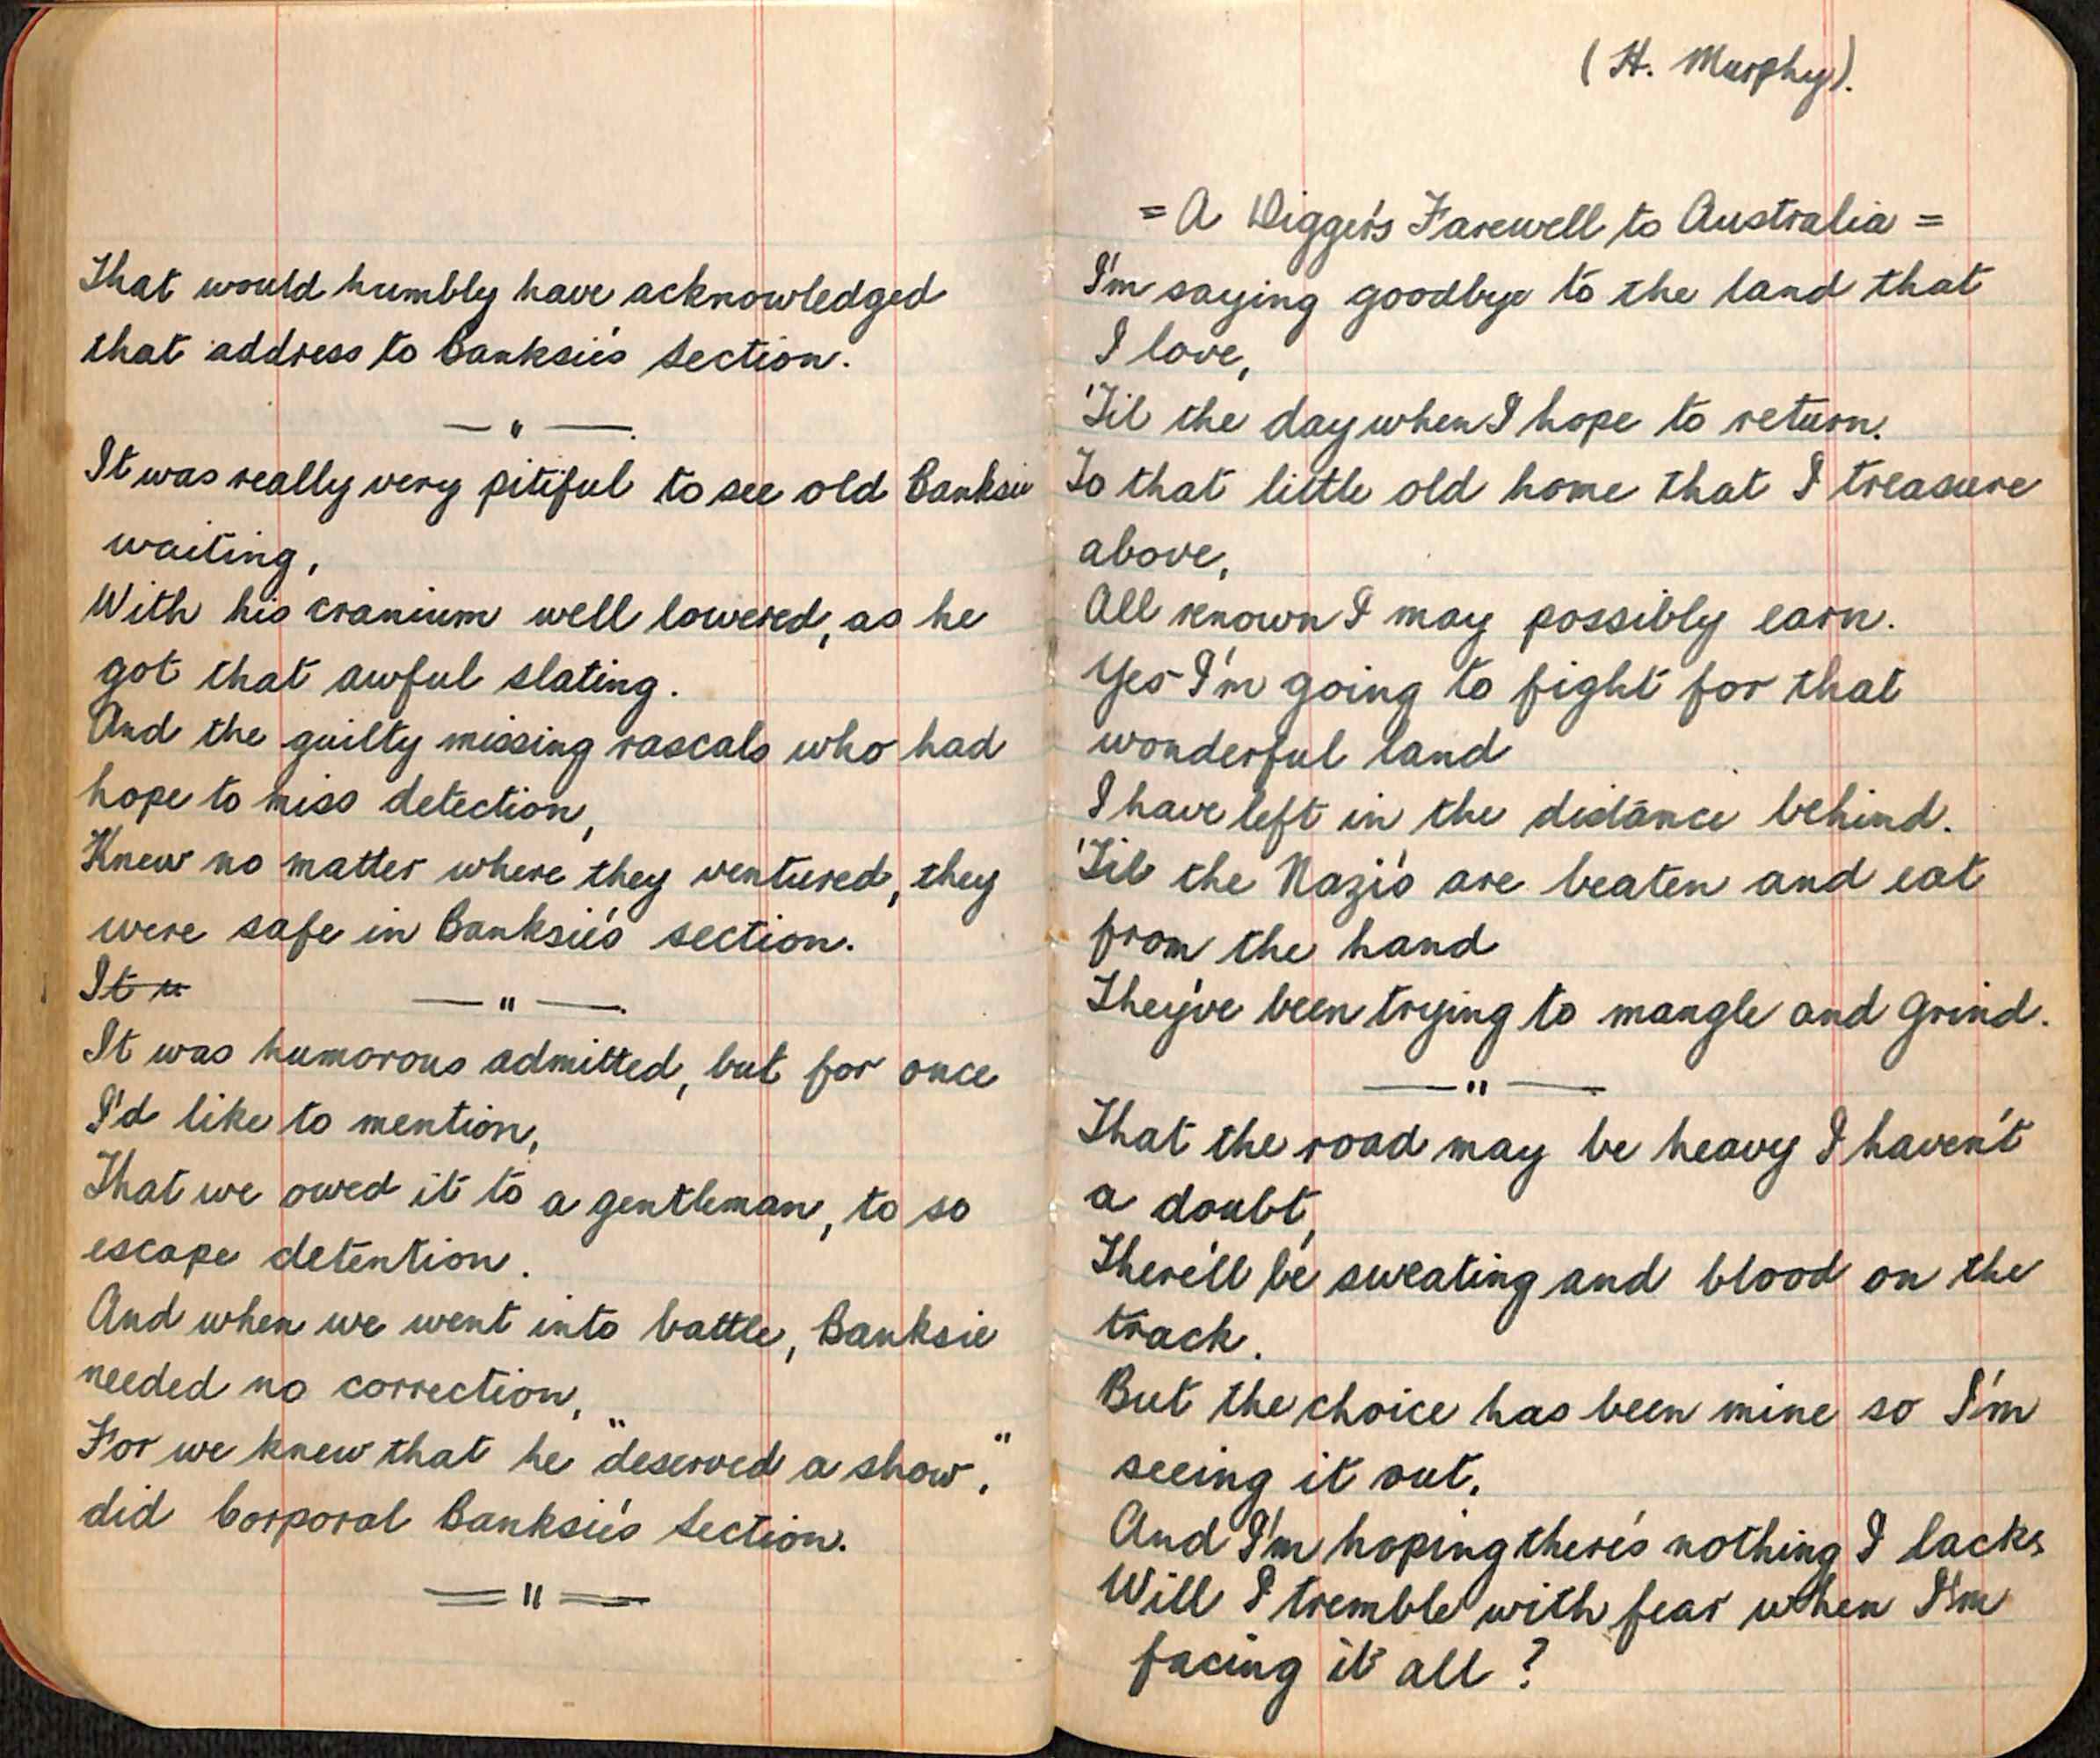 That would humbly have acknowledged
that address to Banksie's Section.
— " —.
It was really very pitiful to see old Banksie
waiting,
With his cranium well lowered, as he
got that awful slating.
And the guilty missing rascals who had
hope to miss detection,
Knew no matter where they ventured, they
were safe in Banksie's section.
It w
— " —.
It was humorous admitted, but for once
I'd like to mention,
That we owed it to a gentleman, to so
escape detention.
And when we went into battle, Banksie
needed no correction,
For we knew that he "deserved a show,"
did Corporal Banksie's Section.
= " =
(H. Murphy).
= A Digger's Farewell to Australia =
I'm saying goodbye to the land that
I love,
'Til the day when I hope to return.
To that little old home that I treasure
above,
All renown I may possibly earn.
Yes I'm going to fight for that
wonderful land
I have left in the distance behind.
'Til the Nazi's are beaten and eat
from the hand
They've been trying to mangle and grind.
— " —
That the road may be heavy I haven't
a doubt,
There'll be sweating and blood on the
track.
But the choice has been mine so I'm
seeing it out,
And I'm hoping there's nothing I lack,
Will I tremble with fear when I'm
facing it all ?